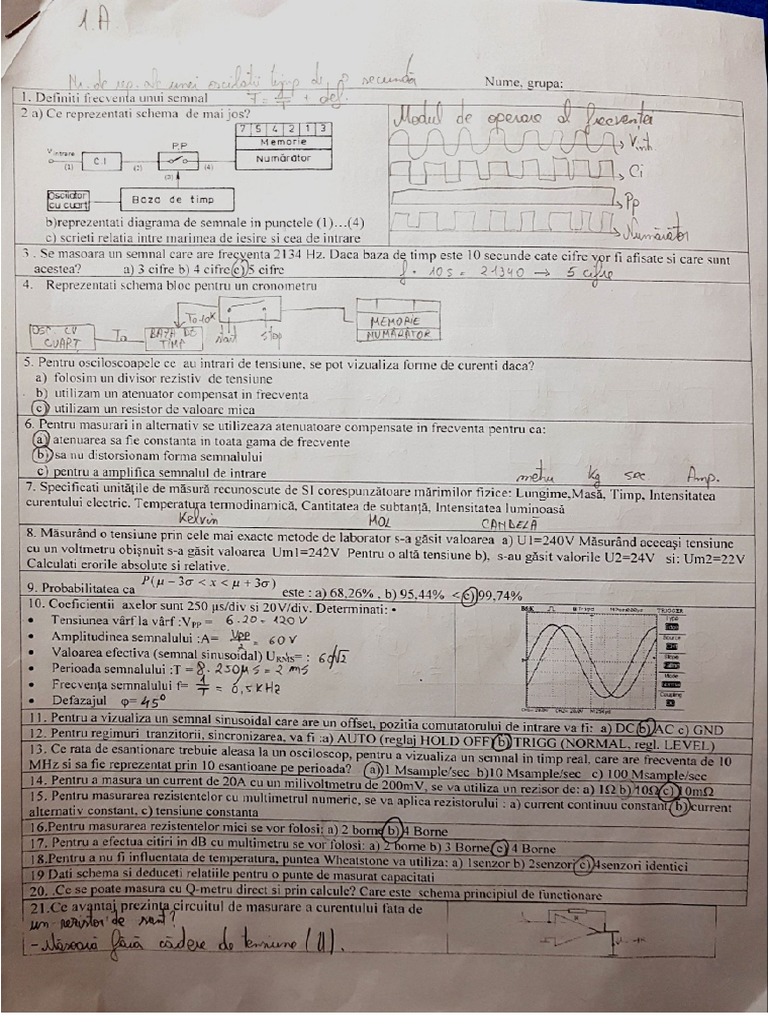 1.A
Nr. de rep. ale unei oscilatii timp de o secundă
Nume, grupa:
1. Definiti frecventa unui semnal
2 a) Ce reprezentati schema de mai jos?
Modul de operare al frecvenței
7 5 4 2 1 3
Memorie
Numărător
V intrare
(1)
C.I
(2)
P.P
(4)
(3)
Oscilator cu cuart
Baza de timp
Vint.
Ci
Pp
Numărător
b)reprezentati diagrama de semnale in punctele (1)…(4)
c) scrieti relatia intre marimea de iesire si cea de intrare
3 . Se masoara un semnal care are frecventa 2134 Hz. Daca baza de timp este 10 secunde cate cifre vor fi afisate si care sunt
acestea? a) 3 cifre b) 4 cifre c) 5 cifre f · 10s = 21340 → 5 cifre
4. Reprezentati schema bloc pentru un cronometru
OSC CU CUARȚ
To
BAZA DE TIMP
start
stop
MEMORIE
NUMĂRĂTOR
5. Pentru osciloscoapele ce au intrari de tensiune, se pot vizualiza forme de curenti daca?
a) folosim un divisor rezistiv de tensiune
b) utilizam un atenuator compensat in frecventa
c) utilizam un resistor de valoare mica
6. Pentru masurari in alternativ se utilizeaza atenuatoare compensate in frecventa pentru ca:
a) atenuarea sa fie constanta in toata gama de frecvente
b) sa nu distorsionam forma semnalului
c) pentru a amplifica semnalul de intrare
metru Kg sec Amp.
7. Specificati unitățile de măsură recunoscute de SI corespunzătoare mărimilor fizice: Lungime,Masă, Timp, Intensitatea
curentului electric. Temperatura termodinamică, Cantitatea de subtanță, Intensitatea luminoasă
Kelvin MOL CANDELĂ
8. Măsurând o tensiune prin cele mai exacte metode de laborator s-a găsit valoarea a) U1=240V Măsurând aceeași tensiune
cu un voltmetru obișnuit s-a găsit valoarea Um1=242V Pentru o altă tensiune b), s-au găsit valorile U2=24V si: Um2=22V
Calculati erorile absolute si relative.
9. Probabilitatea ca P(μ − 3σ < x < μ + 3σ) este : a) 68,26% , b) 95,44% < c) 99,74%
10. Coeficientii axelor sunt 250 μs/div si 20V/div. Determinati: •
• Tensiunea vârf la vârf :VPP = 6·20 = 120 V
• Amplitudinea semnalului :A= Vpp/2 = 60 V
• Valoarea efectiva (semnal sinusoidal) URMS= :
• Perioada semnalului :T = 8 · 250μs = 2 ms
• Frecvența semnalului f= 1/T = 0,5 KHz
• Defazajul φ= 45°
TRIGGER
Type
Source
Slope
Mode
Coupling
11. Pentru a vizualiza un semnal sinusoidal care are un offset, pozitia comutatorului de intrare va fi: a) DC b) AC c) GND
12. Pentru regimuri tranzitorii, sincronizarea, va fi :a) AUTO (reglaj HOLD OFF) b) TRIGG (NORMAL, regl. LEVEL)
13. Ce rata de esantionare trebuie aleasa la un osciloscop, pentru a vizualiza un semnal in timp real, care are frecventa de 10
MHz si sa fie reprezentat prin 10 esantioane pe perioada? a) 1 Msample/sec b)10 Msample/sec c) 100 Msample/sec
14. Pentru a masura un current de 20A cu un milivoltmetru de 200mV, se va utiliza un rezisor de: a) 1Ω b) 10Ω c) 10mΩ
15. Pentru masurarea rezistentelor cu multimetrul numeric, se va aplica rezistorului : a) current continuu constant, b) current
alternativ constant, c) tensiune constanta
16.Pentru masurarea rezistentelor mici se vor folosi: a) 2 borne b) 4 Borne
17. Pentru a efectua citiri in dB cu multimetru se vor folosi: a) 2 borne b) 3 Borne c) 4 Borne
18.Pentru a nu fi influentata de temperatura, puntea Wheatstone va utiliza: a) 1senzor b) 2senzor c) 4senzori identici
19 Dati schema si deduceti relatiile pentru o punte de masurat capacitati
20. .Ce se poate masura cu Q-metru direct si prin calcule? Care este schema principiul de functionare
21.Ce avantaj prezinta circuitul de masurare a curentului fata de
un rezistor de sant?
- Măsoară fără cădere de tensiune (U).